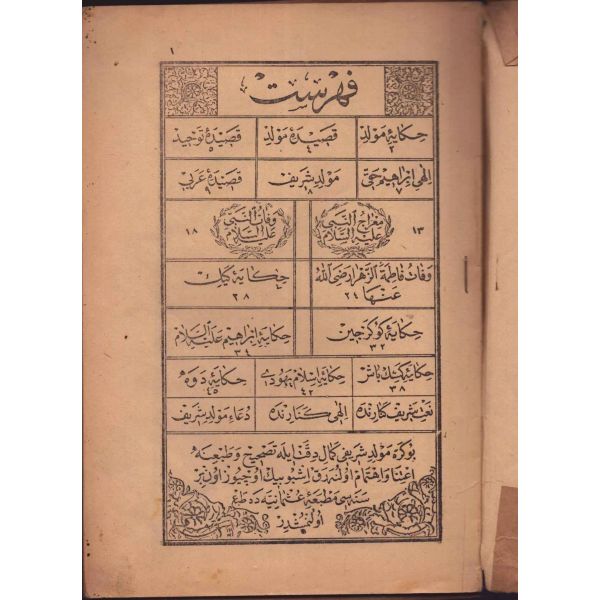 ١
فهرست
حكايۀ مولد ٢ قصيدۀ مولد ٤ قصيدۀ توحيد ٥
الهى ابراهيم حقى ٧ مولد شريف ٨ قصيدۀ عربى ٩
معراج النبى عليه السلام ١٣ وفات النبى عليه السلام ١٨
وفات فاطمة الزهرا رضى الله عنها ٢٤ حكايۀ كيك ٢٨
حكايۀ كوكرجين ٣٢ حكايۀ ابراهيم عليه السلام ٣٤
حكايۀ كسك باش ٣٨ حكايۀ اسلام يهودى ٤٢ حكايۀ دوه ٤٥
نعت شريف كنارنده الهى كنارنده دعاء مولد شريف
بو كره مولد شريفى كمال دقتله تصحيح و طبعنه
اعتنا و اهتمام اولنه رق اشبو بيك اوچيوز اون بر
سنه سى مطبعۀ عثمانيه ده طبع
اولنمشدر